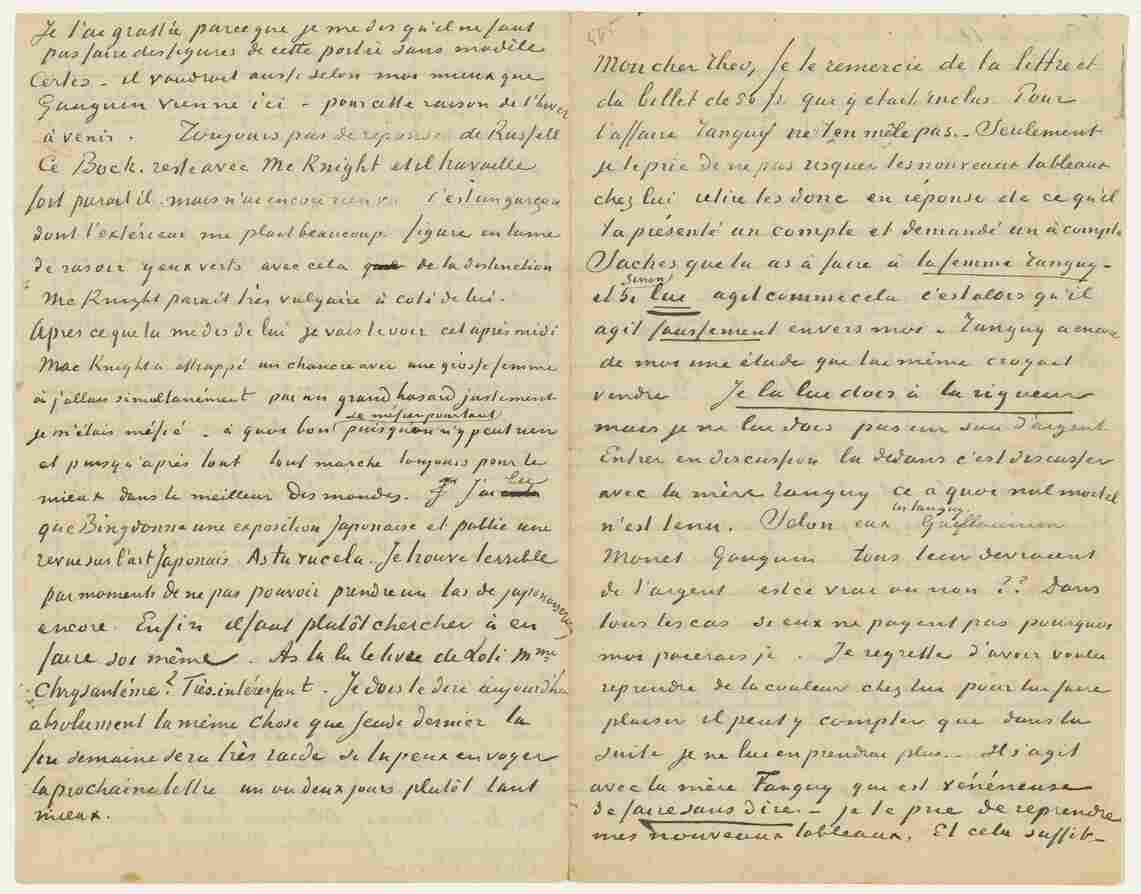 Je l'ai grattée parceque je me dis qu'il ne faut
pas faire des figures de cette portée sans modèle
Certes – il vaudrait aussi selon moi mieux que
Gauguin vienne ici – pour cette raison de l'hiver
à venir. Toujours pas de réponse de Russell
Ce Bock. reste avec Mc Knight et il travaille
fort parait il. mais n'ai encore rien vu c'est un garçon
dont l'extérieur me plait beaucoup figure en lame
de rasoir yeux verts avec cela que de la distinction
Mc Knight parait très vulgaire à coté de lui.
Après ce que tu me dis de lui je vais le voir cet après midi
Mac Knight a attrappé un chancre avec une grosse femme
où j'allais simultanément par un grand hasard justement
se méfier pourtant
je m'étais méfié. à quoi bon puisqu'on n'y peut rien
et puisqu'après tout tout marche toujours pour le
lu
mieux dans le meilleur des mondes. J'ai
que Bing donne une exposition Japonaise et publie une
revue sur l'art Japonais. As tu vu cela. Je trouve terrible
par moments de ne pas pouvoir prendre un tas de japonaiseries
encore. Enfin il faut plutôt chercher à en
faire soi même. As tu lu le livre de Loti Mme
Chrysantème? Très intéressant. Je dois te dire aujourd'hui
absolument la même chose que Jeudi dernier la
fin semaine sera très raide si tu peux envoyer
la prochaine lettre un ou deux jours plutôt tant
mieux.
Mon cher Theo, Je te remercie de ta lettre et
du billet de 50 fr que y etait inclus. Pour
l'affaire Tanguy ne t'en mêle pas. – Seulement
je te prie de ne pas risquer les nouveaux tableaux
chez lui retire les donc en réponse de ce qu'il
t'a présenté un compte et demandé un àcompte
Saches que tu as à faire à la femme Tanguy –
Sinon
et si lui agit comme cela c'est alors qu'il
agit faussement envers moi. Tanguy a encore
de moi une étude que lui même croyait
vendre Je la lui dois à la rigueur
mais je ne lui dois pas un sou d'argent
Entrer en discussion là dedans c'est discuter
avec la mère Tanguy ce à quoi nul mortel
les tanguy
n'est tenu. Selon eux Guillaumin
Monet Gauguin tous leur devraient
de l'argent est ce vrai ou non ?? Dans
tous les cas si eux ne payent pas pourquoi
moi paierais je. Je regrette d'avoir voulu
reprendre de la couleur chez lui pour lui faire
plaisir il peut y compter que dans la
suite je ne lui en prendrai plus. – Il s'agit
avec la mère Tanguy qui est vénéneuse
de faire sans dire. – je te prie de reprendre
mes nouveaux tableaux. Et cela suffit –